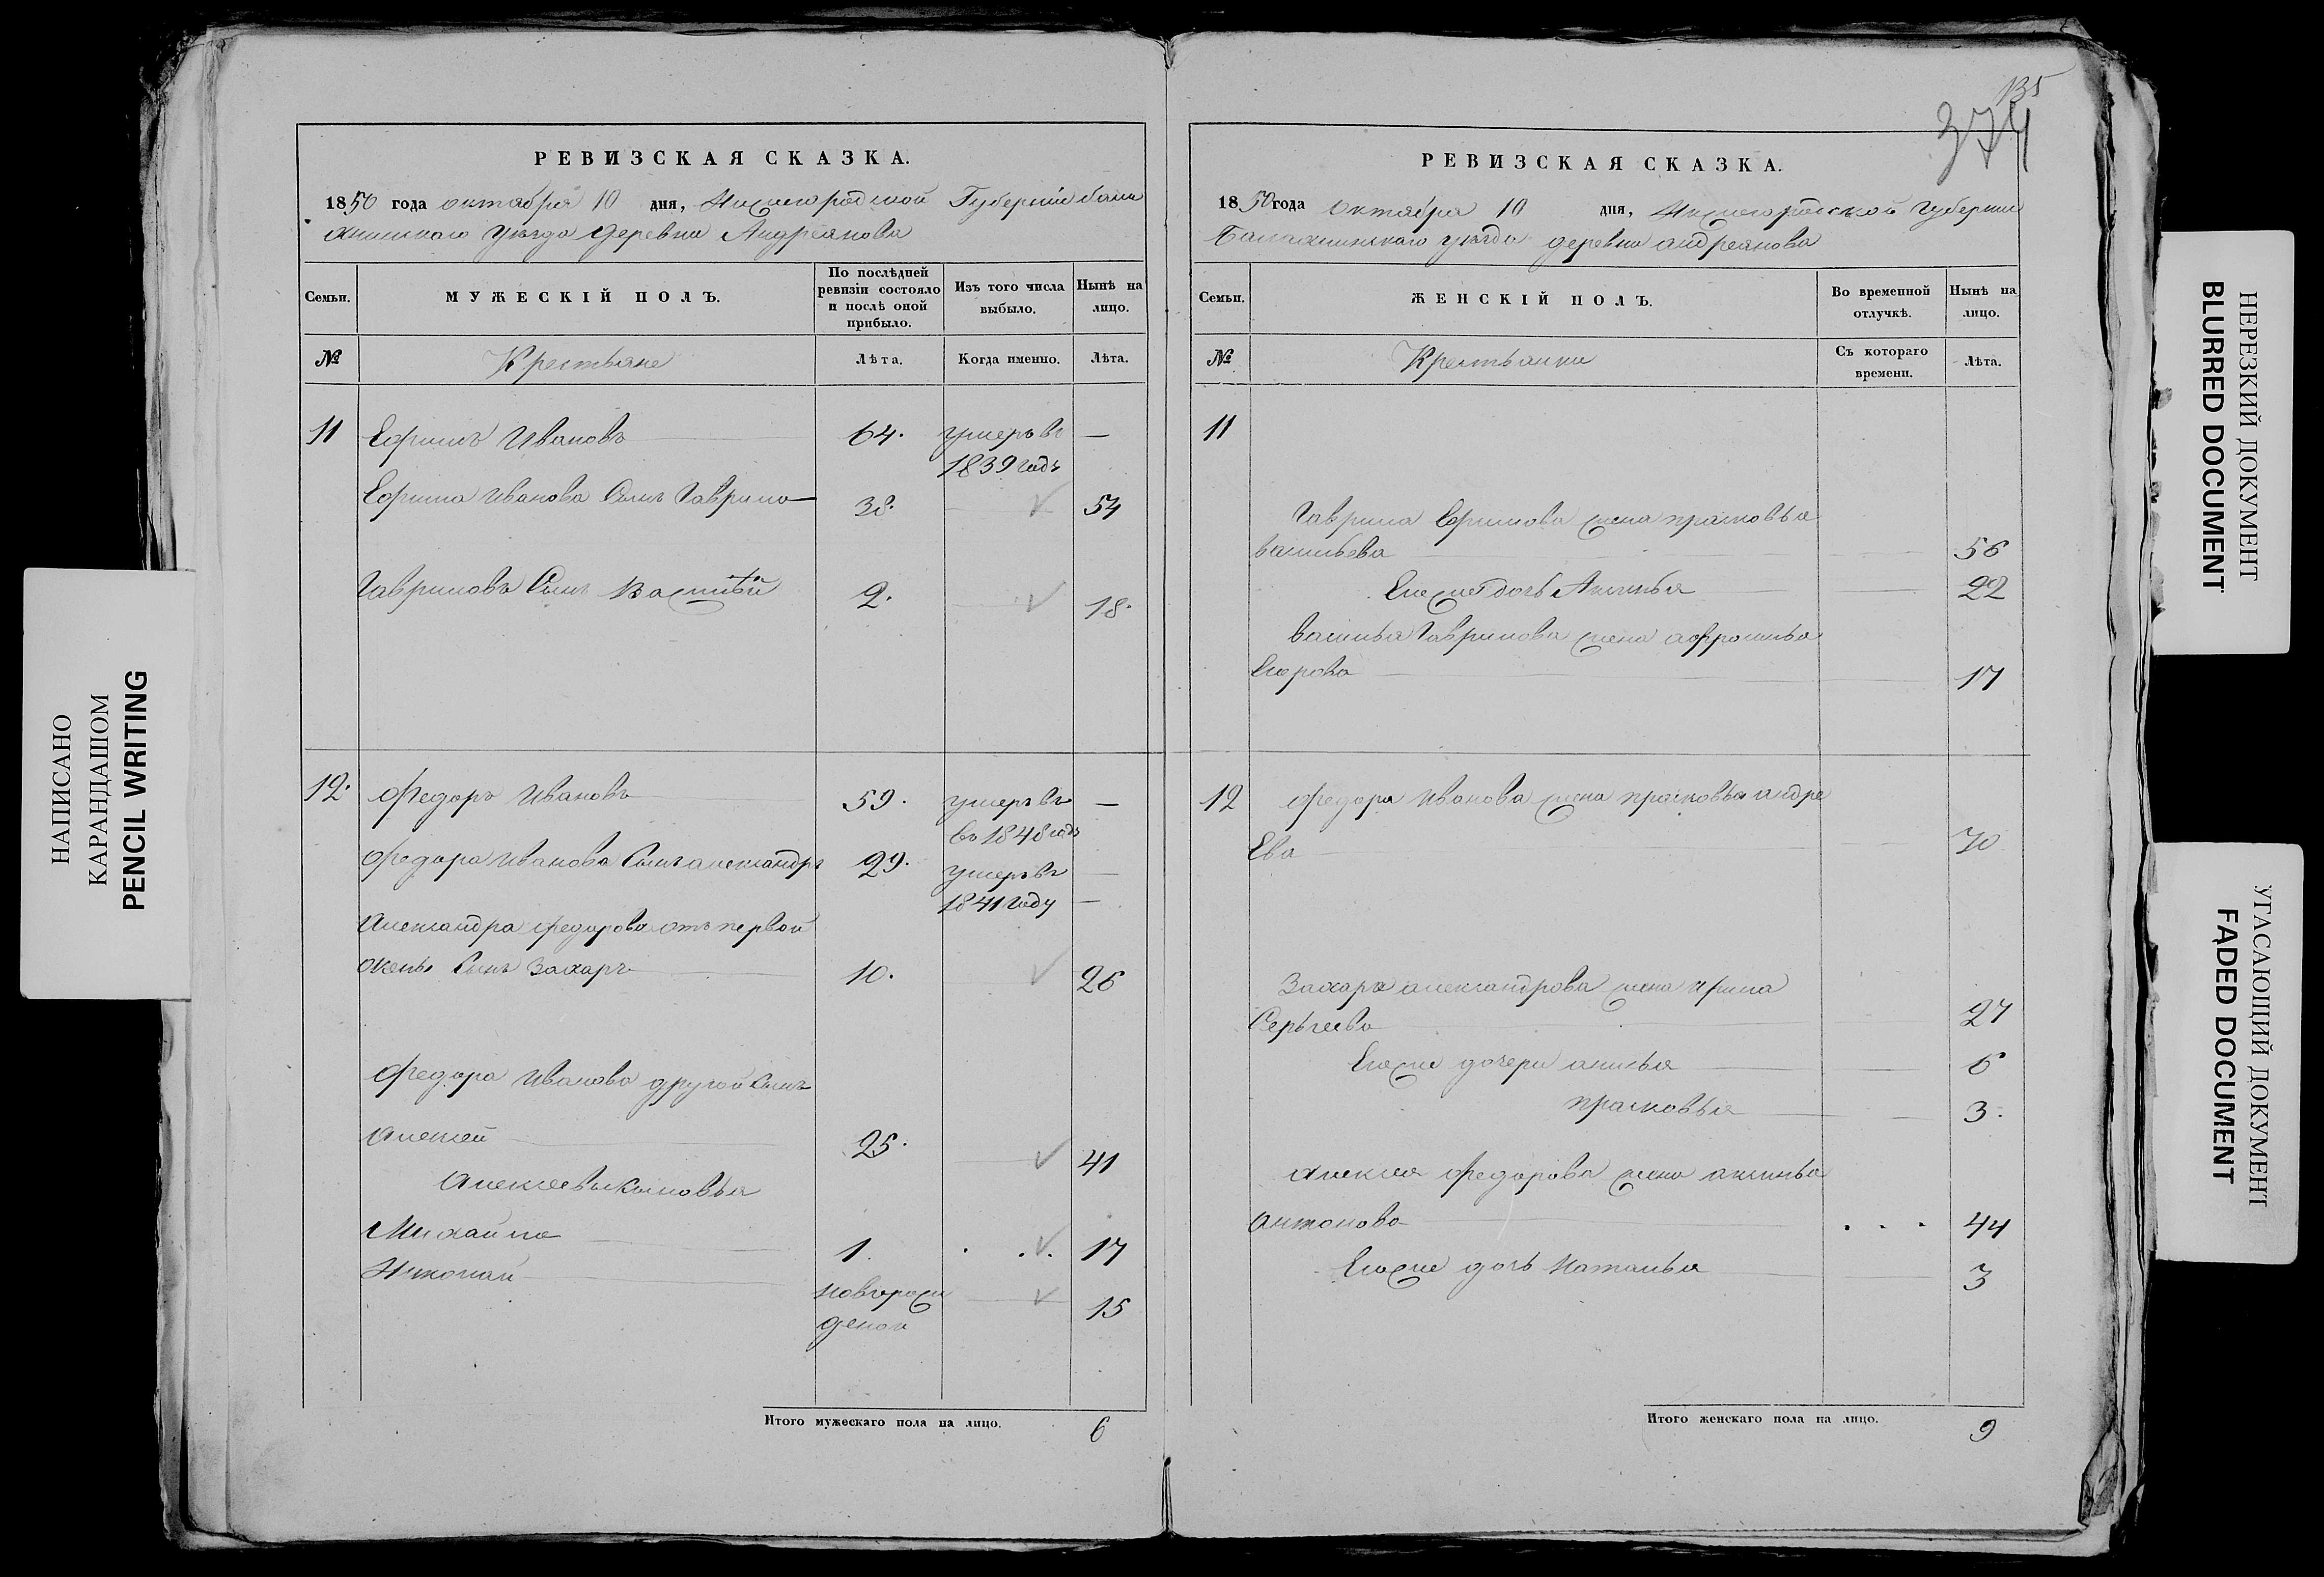 НАПИСАНО
КАРАНДАШОМ
PENCIL WRITING
РЕВИЗСКАЯ СКАЗКА.
1850 года октября 10 дня, Нижегородской Губернии бала
хнинскаго уѣзда деревни Андреянова
Семьи.
МУЖЕСКІЙ ПОЛЪ.
По послѣдней ревизіи состояло и послѣ оной прибыло.
Изъ того числа выбыло.
Нынѣ на лицо.
№
Крестьяне
Лѣта.
Когда именно.
Лѣта.
11 Ефимъ Ивановъ 64. умеръ въ —
1839 годъ
Ефима Иванова Сынъ Гаврило 38. 54
Гавриловъ Сынъ Василѣй 2. 18.
12. Федоръ Ивановъ 59. умеръ въ —
во 1848 годъ
Федора Иванова Сынъ александръ 29. умеръ въ —
1841 году —
Александра федорова отъ первой
жены Сынъ Захаръ 10. 26
Федора Иванова другой Сынъ
Алексей 25. 41
Алексеевы Сыновья
Михайло 1. 17
Николай новорож 15
деной
Итого мужескаго пола на лицо. 6
135
374
РЕВИЗСКАЯ СКАЗКА.
1850 года Октября 10 дня, Нижегородской Губернии
Балахнинскаго уѣзда деревни андреянова
Семьи.
ЖЕНСКІЙ ПОЛЪ.
Во временной отлучкѣ.
Нынѣ на лицо.
№
Крестьянки
Съ котораго времени.
Лѣта.
11
Гаврила Ефимова жена прасковья
васильева 56
Егоже дочь Аксинья 22
василья Гаврилова жена афросинья
Егорова 17
12 Федора Иванова жена прасковья андре
Ева 70
Захара александрова жена Ирина
Сергеева 27
Егоже дочери анисья 6
прасковья 3.
Алексея Федорова жена аксинья
антонова 44
Егоже дочь наталья 3
Итого женскаго пола на лицо. 9
НЕРЕЗКИЙ ДОКУМЕНТ
BLURRED DOCUMENT
УГАСАЮЩИЙ ДОКУМЕНТ
FADED DOCUMENT